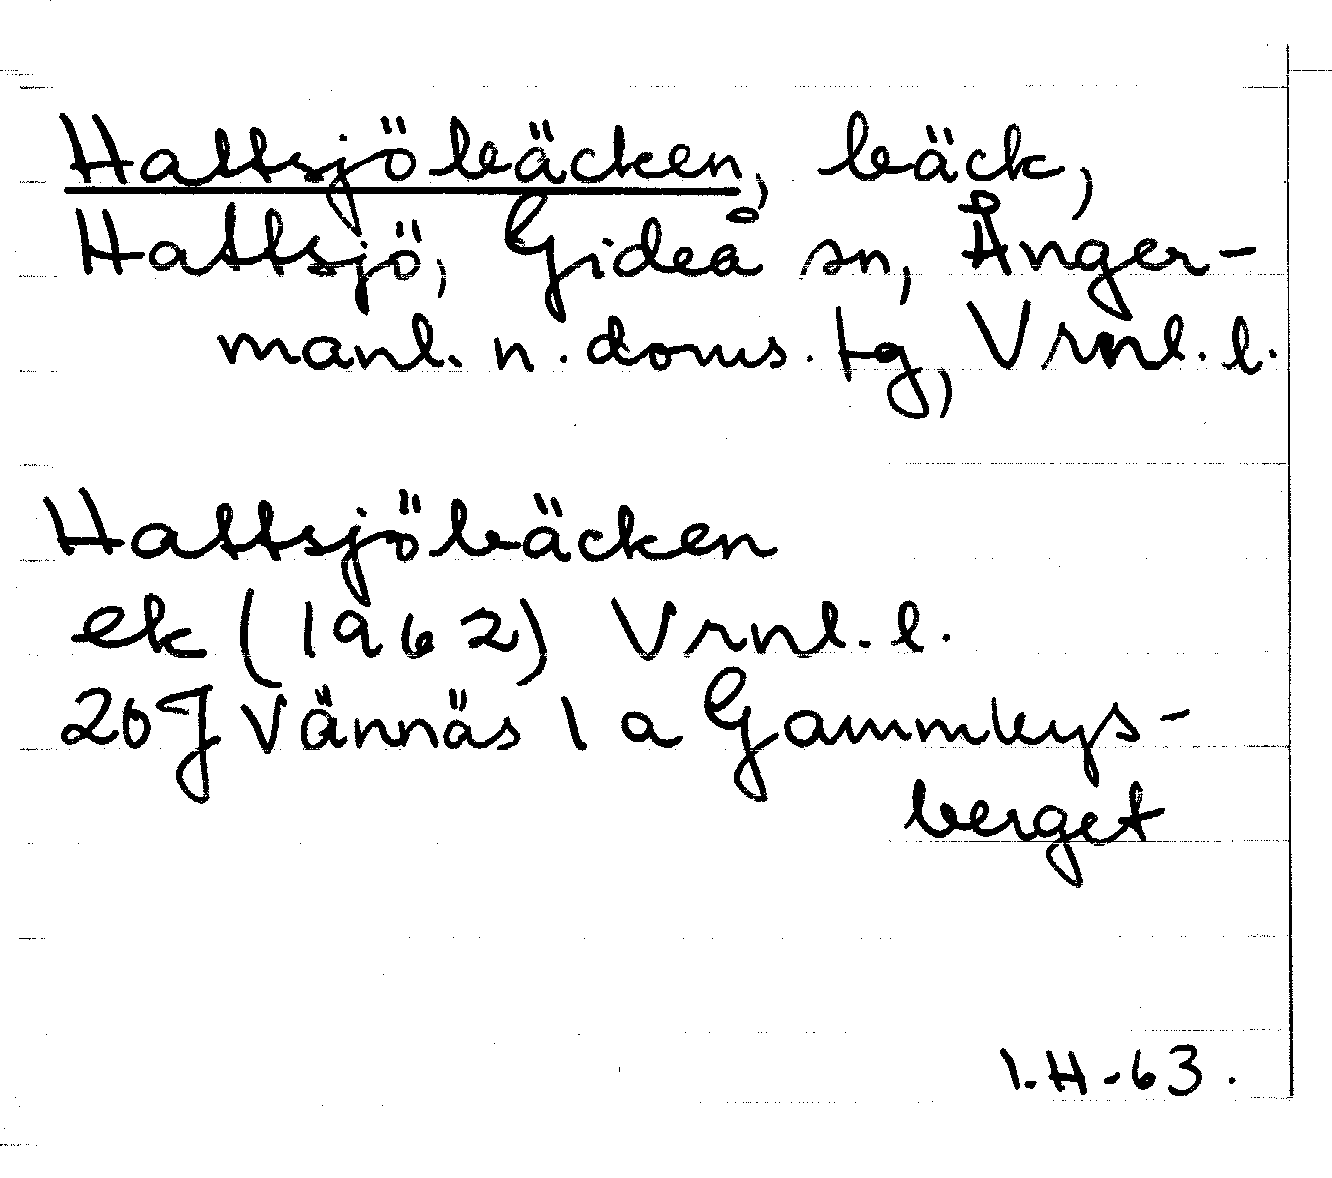 Hattsjöbäcken, bäck,
Hattsjö, Gideå sn, Ånger-
manl. n. doms. tg, Vrnl. l.
Hattsjöbäcken
ek (1962) Vrnl. l.
20 J Vännäs 1 a Gammbys-
berget
I.H-63.